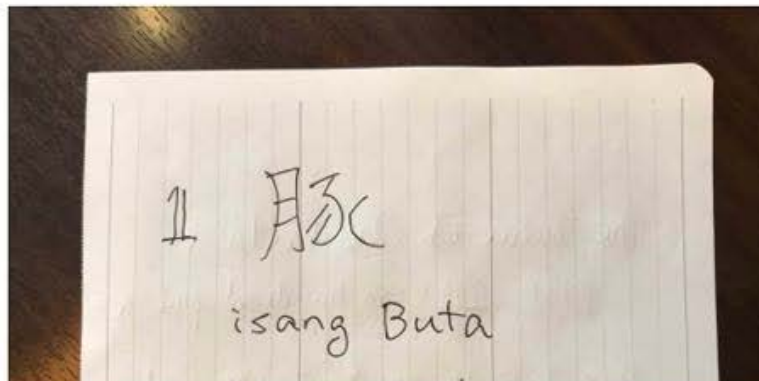 1 豚
isang Buta